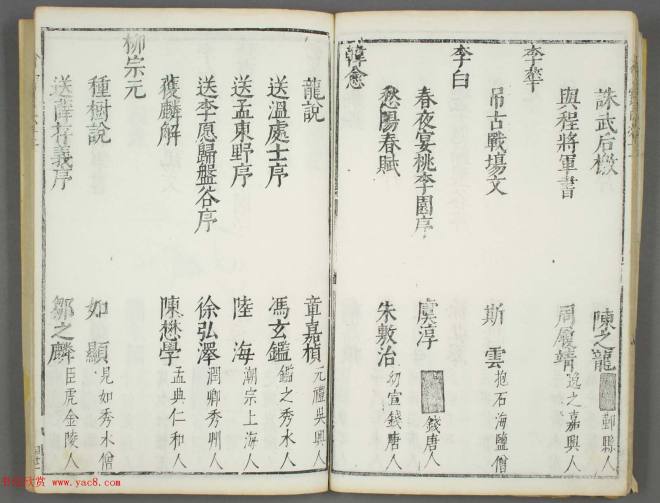 誅武后檄 陳之龍 鄞縣人
與程將軍書 周履靖 逸之嘉興人
李華
吊古戰場文 斯雲 抱石海鹽僧
李白
春夜宴桃李園序 虞淳 錢唐人
愁陽春賦 朱敷治 幼宣錢唐人
韓愈
龍說 章嘉楨 元禮吳興人
送溫處士序 馮玄鑑 鑑之秀水人
送孟東野序 陸海 潮宗上海人
送李愿歸盤谷序 徐弘澤 潤卿秀州人
獲麟解 陳懋學 孟典仁和人
柳宗元
種樹說 如顯 見如秀水僧
送薛存義序 鄒之麟 臣虎金陵人
书法欣赏 www.yac8.com